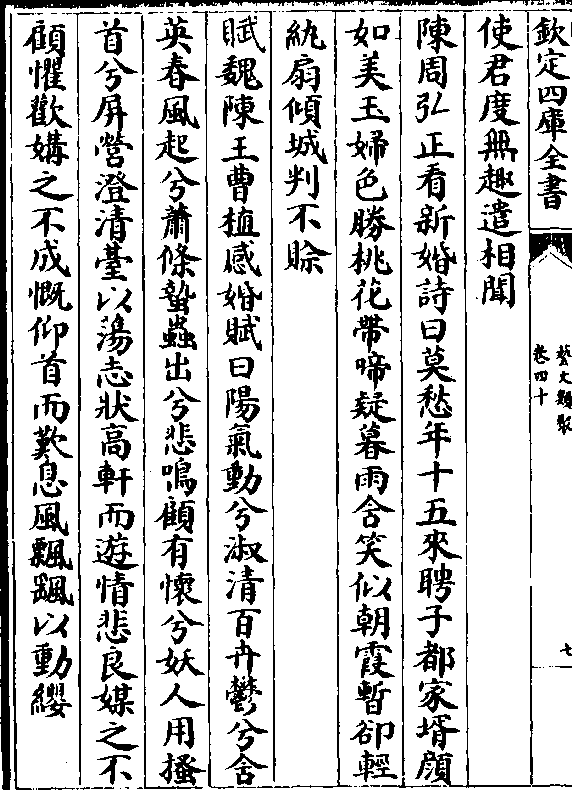 欽定四庫全書
藝文類聚
卷四十
七
使君度無趣遣相聞
陳周弘正看新婚詩曰莫愁年十五來聘子都家壻顔
如美玉婦色勝桃花帶啼疑暮雨含笑似朝霞暫卻輕
紈扇傾城判不賖
賦魏陳王曹植感婚賦曰陽氣動兮淑清百卉鬱兮含
英春風起兮蕭條蟄蟲出兮悲鳴顧有懷兮妖人用搔
首兮屏營澄清臺以蕩志狀高軒而遊情悲良媒之不
顧懼歡媾之不成慨仰首而歎息風飄飄以動纓